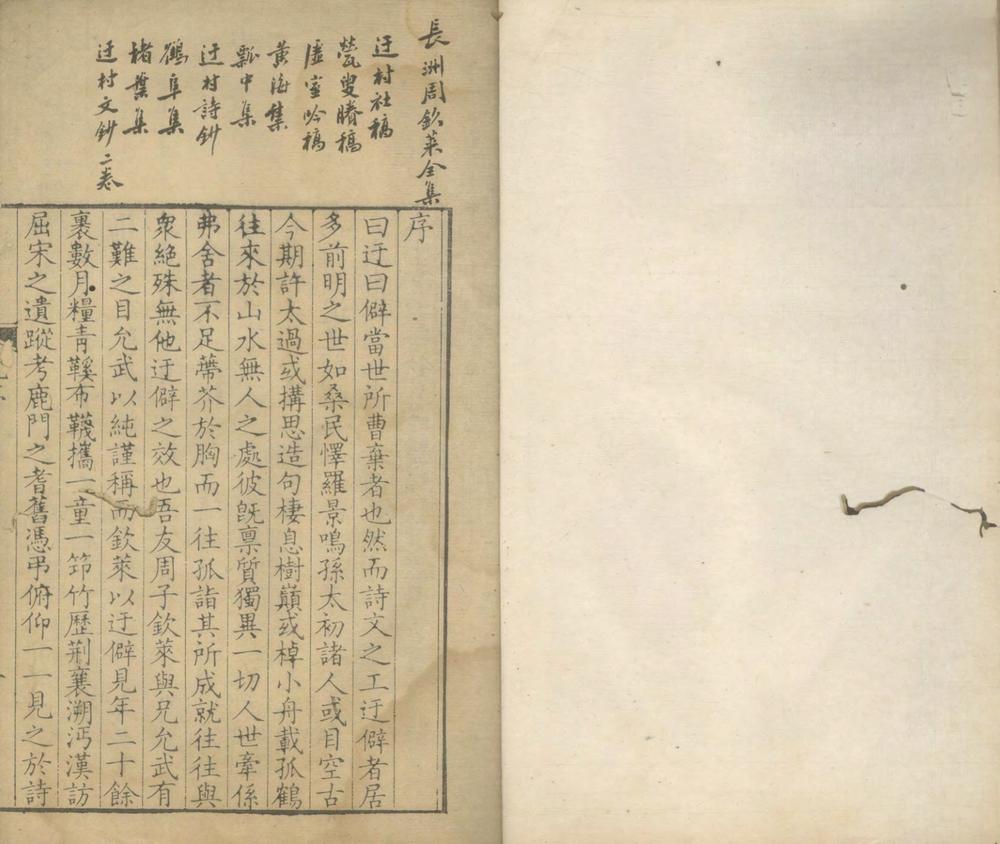 長洲周欽萊全集
迂村社稿
甆叟賸稿
虛室吟稿
黃海集
瓢中集
迂村詩鈔
鶴阜集
楮葉集
迂村文鈔 二卷
序
曰迂曰僻當世所曹棄者也然而詩文之工迂僻者居
多前明之世如桑民懌羅景鳴孫太初諸人或目空古
今期許太過或搆思造句棲息樹巔或棹小舟載孤鶴
往來於山水無人之處彼旣禀質獨異一切人世牽係
弗舍者不足蔕芥於胸而一往孤詣其所成就往往與
衆絕殊無他迂僻之效也吾友周子欽萊與兄允武有
二難之目允武以純謹稱而欽萊以迂僻見年二十餘
裹數月糧青鞵布韈攜一童一笻竹歷荆襄溯沔漢訪
屈宋之遺蹤考鹿門之耆舊憑弔俯仰一一見之於詩